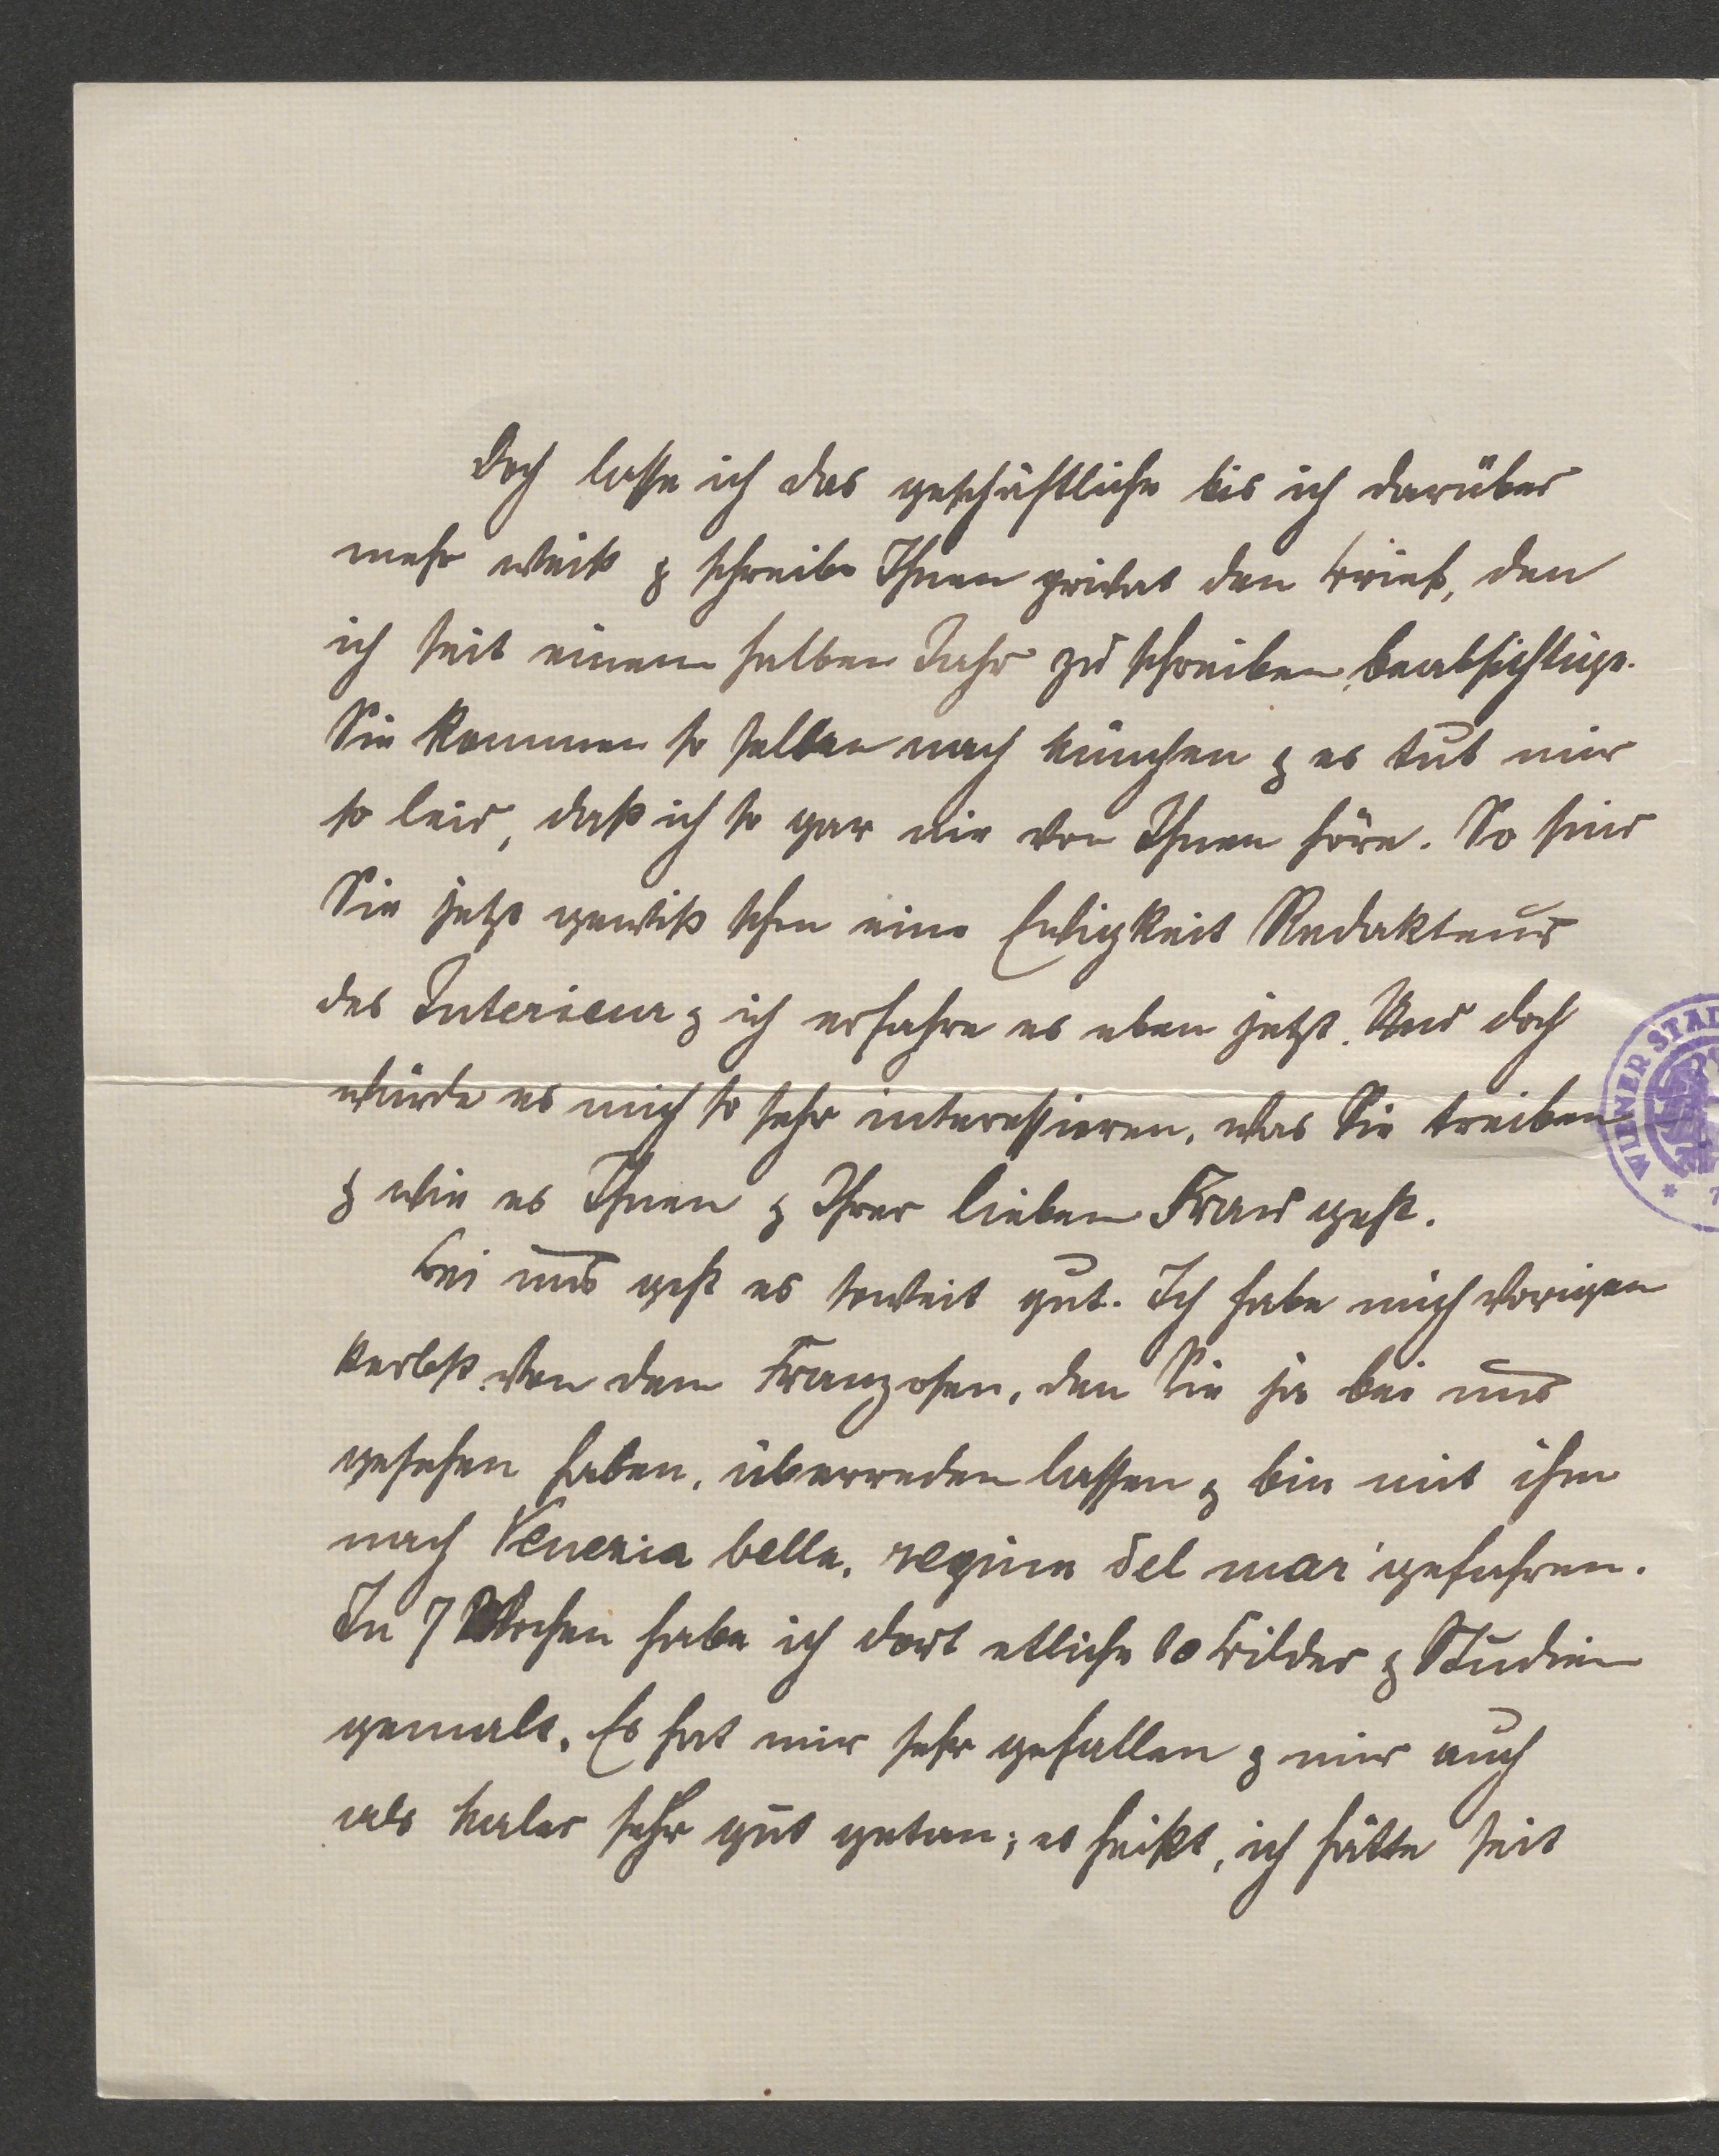 Doch lasse ich das geschäftliche bis ich darüber
mehr weiß & schreibe Ihnen privat den Brief, den
ich seit einem halben Jahr zu schreiben beabsichtige.
Sie kommen so selten nach München & es tut mir
so leid, daß ich so gar nie von Ihnen höre. So sind
Sie jetzt gewiß schon eine Ewigkeit Redakteur
des Interieur & ich erfahre es eben jetzt. Und doch
würde es mich so sehr interessieren, was Sie treiben
& wie es Ihnen & Ihrer lieben Frau geht.
Bei uns geht es soweit gut. Ich habe mich vorigen
Herbst von dem Franzosen, den Sie ja bei uns
gesehen haben, überreden lassen & bin mit ihm
nach Venezia bella, regina del mar' gefahren.
In 7 Wochen habe ich dort etliche 60 Bilder & Studien
gemalt. Es hat mir sehr gefallen & mir auch
als Maler sehr gut getan; es heißt, ich hätte seit
WIENER STAD
* 7